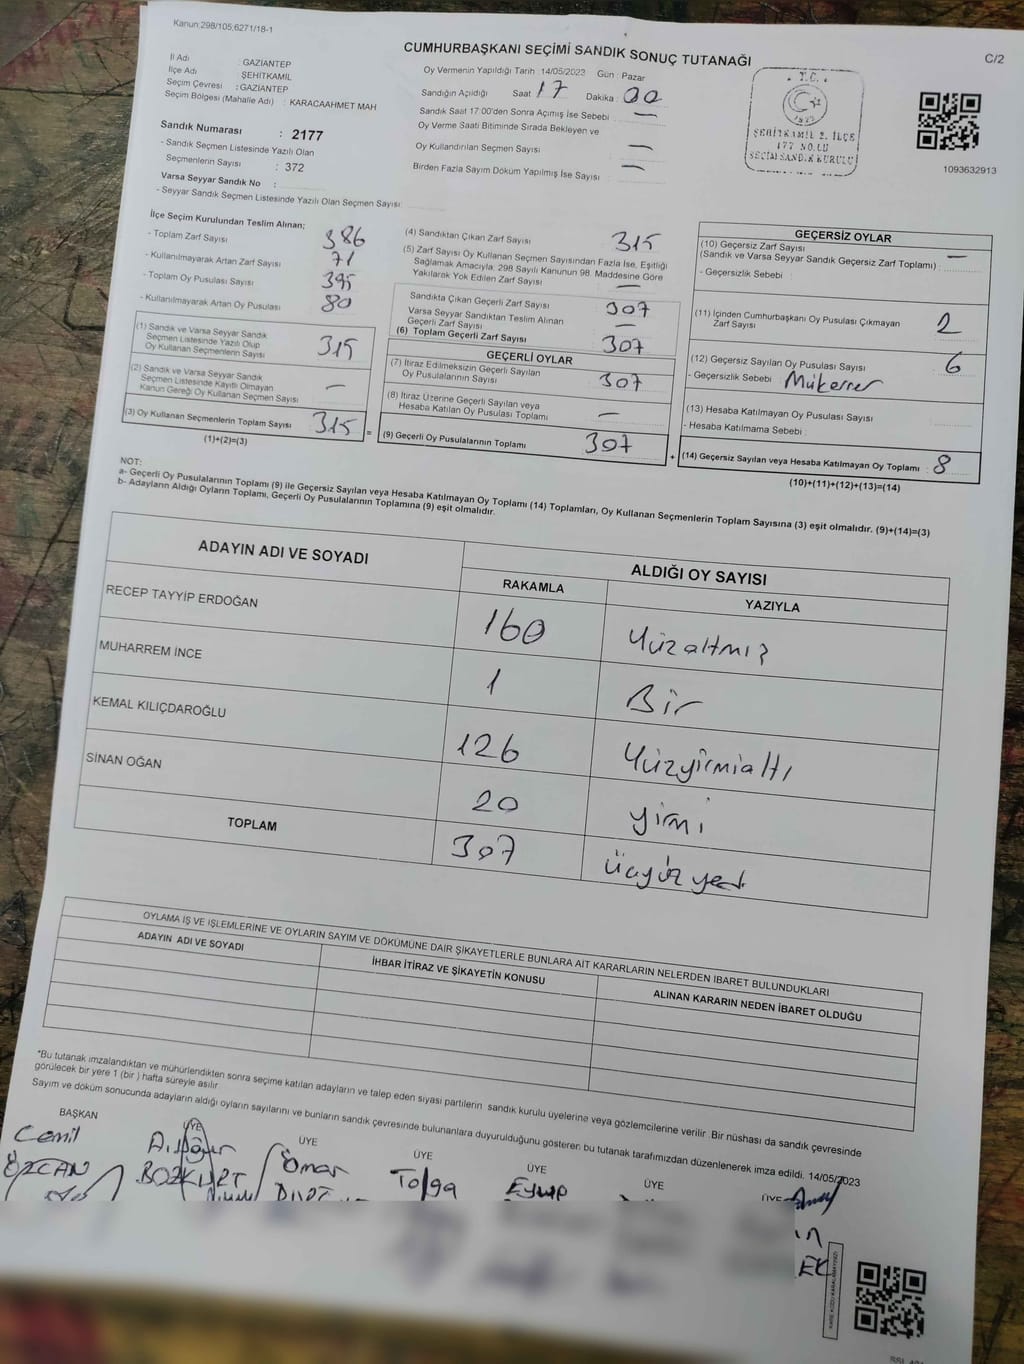 Kanun:298/105;6271/18-1
CUMHURBAŞKANI SEÇİMİ SANDIK SONUÇ TUTANAĞI
C/2
İl Adı : GAZİANTEP
İlçe Adı : ŞEHİTKAMİL
Seçim Çevresi : GAZİANTEP
Seçim Bölgesi (Mahalle Adı) : KARACAAHMET MAH
Sandık Numarası : 2177
- Sandık Seçmen Listesinde Yazılı Olan
Seçmenlerin Sayısı : 372
Varsa Seyyar Sandık No :
- Seyyar Sandık Seçmen Listesinde Yazılı Olan Seçmen Sayısı:
Oy Vermenin Yapıldığı Tarih 14/05/2023 Gün : Pazar
Sandığın Açıldığı Saat 17 Dakika : 00
Sandık Saat 17:00'den Sonra Açımış İse Sebebi : —
Oy Verme Saati Bitiminde Sırada Bekleyen ve
Oy Kullandırılan Seçmen Sayısı : —
Birden Fazla Sayım Döküm Yapılmış İse Sayısı : —
T.C.
ŞEHİTKAMİL 2. İLÇE
177 NO.LU
SEÇİM SANDIK KURULU
1093632913
İlçe Seçim Kurulundan Teslim Alınan;
- Toplam Zarf Sayısı 386
- Kullanılmayarak Artan Zarf Sayısı : 71
- Toplam Oy Pusulası Sayısı : 395
- Kullanılmayarak Artan Oy Pusulası : 80
(1) Sandık ve Varsa Seyyar Sandık
Seçmen Listesinde Yazılı Olup
Oy Kullanan Seçmenlerin Sayısı : 315
(2) Sandık ve Varsa Seyyar Sandık
Seçmen Listesinde Kayıtlı Olmayan
Kanun Gereği Oy Kullanan Seçmen Sayısı : —
(3) Oy Kullanan Seçmenlerin Toplam Sayısı : 315
(1)+(2)=(3)
=
(4) Sandıktan Çıkan Zarf Sayısı : 315
(5) Zarf Sayısı Oy Kullanan Seçmen Sayısından Fazla İse, Eşitliği
Sağlamak Amacıyla; 298 Sayılı Kanunun 98. Maddesine Göre
Yakılarak Yok Edilen Zarf Sayısı : —
Sandıkta Çıkan Geçerli Zarf Sayısı : 307
Varsa Seyyar Sandıktan Teslim Alınan
Geçerli Zarf Sayısı : —
(6) Toplam Geçerli Zarf Sayısı : 307
GEÇERLİ OYLAR
(7) İtiraz Edilmeksizin Geçerli Sayılan
Oy Pusulalarının Sayısı : 307
(8) İtiraz Üzerine Geçerli Sayılan veya
Hesaba Katılan Oy Pusulası Toplamı : —
(9) Geçerli Oy Pusulalarının Toplamı : 307
+
GEÇERSİZ OYLAR
(10) Geçersiz Zarf Sayısı
(Sandık ve Varsa Seyyar Sandık Geçersiz Zarf Toplamı) : —
- Geçersizlik Sebebi :
(11) İçinden Cumhurbaşkanı Oy Pusulası Çıkmayan
Zarf Sayısı : 2
(12) Geçersiz Sayılan Oy Pusulası Sayısı : 6
- Geçersizlik Sebebi : Mükerrer
(13) Hesaba Katılmayan Oy Pusulası Sayısı :
- Hesaba Katılmama Sebebi :
(14) Geçersiz Sayılan veya Hesaba Katılmayan Oy Toplamı : 8
(10)+(11)+(12)+(13)=(14)
NOT:
a- Geçerli Oy Pusulalarının Toplamı (9) ile Geçersiz Sayılan veya Hesaba Katılmayan Oy Toplamı (14) Toplamları, Oy Kullanan Seçmenlerin Toplam Sayısına (3) eşit olmalıdır. (9)+(14)=(3)
b- Adayların Aldığı Oyların Toplamı, Geçerli Oy Pusulalarının Toplamına (9) eşit olmalıdır.
ADAYIN ADI VE SOYADI
ALDIĞI OY SAYISI
RAKAMLA YAZIYLA
RECEP TAYYİP ERDOĞAN 160 Yüzaltmış
MUHARREM İNCE 1 Bir
KEMAL KILIÇDAROĞLU 126 Yüzyirmialtı
SİNAN OĞAN 20 yirmi
TOPLAM 307 üçyüz yedi
OYLAMA İŞ VE İŞLEMLERİNE VE OYLARIN SAYIM VE DÖKÜMÜNE DAİR ŞİKAYETLERLE BUNLARA AİT KARARLARIN NELERDEN İBARET BULUNDUKLARI
ADAYIN ADI VE SOYADI
İHBAR İTİRAZ VE ŞİKAYETİN KONUSU
ALINAN KARARIN NEDEN İBARET OLDUĞU
*Bu tutanak imzalandıktan ve mühürlendikten sonra seçime katılan adayların ve talep eden siyasi partilerin sandık kurulu üyelerine veya gözlemcilerine verilir. Bir nüshası da sandık çevresinde
görülecek bir yere 1 (bir) hafta süreyle asılır.
Sayım ve döküm sonucunda adayların aldığı oyların sayılarını ve bunların sandık çevresinde bulunanlara duyurulduğunu gösteren bu tutanak tarafımızdan düzenlenerek imza edildi. 14/05/2023
BAŞKAN ÜYE ÜYE ÜYE ÜYE ÜYE ÜYE
Cemil
ÖZCAN
BOZKURT
Ömer
Tolga
Eyüp